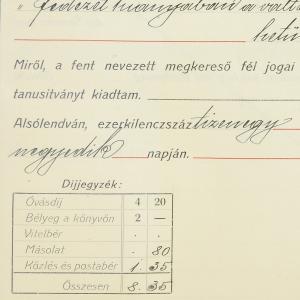 „ fedezet hiányában a vált
hetü
Miről, a fent nevezett megkereső fél jogai
tanusitványt kiadtam.
Alsólendván, ezerkilenczszáz tizenegy
negyedik napján.
Dijjegyzék:
Óvásdij 4 20
Bélyeg a könyvön 2 —
Vitelbér . .
Másolat . 80
Közlés és postabér 1. 35
Összesen 8. 35